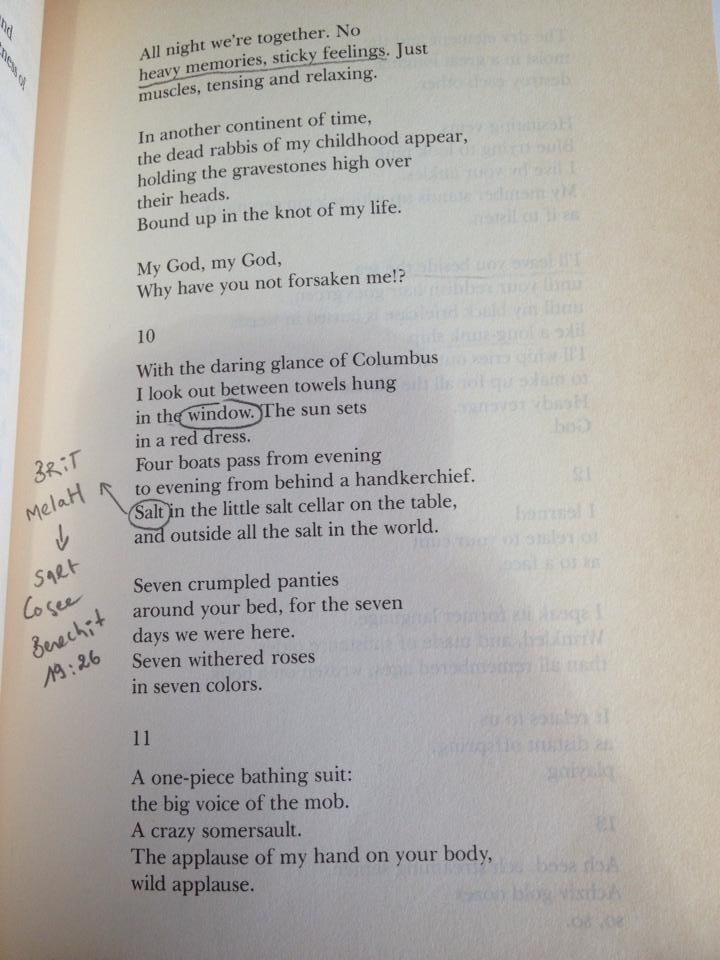 All night we're together. No
heavy memories, sticky feelings. Just
muscles, tensing and relaxing.
In another continent of time,
the dead rabbis of my childhood appear,
holding the gravestones high over
their heads.
Bound up in the knot of my life.
My God, my God,
Why have you not forsaken me!?
10
With the daring glance of Columbus
I look out between towels hung
in the window. The sun sets
in a red dress.
Four boats pass from evening
to evening from behind a handkerchief.
Salt in the little salt cellar on the table,
and outside all the salt in the world.
Seven crumpled panties
around your bed, for the seven
days we were here.
Seven withered roses
in seven colors.
11
A one-piece bathing suit:
the big voice of the mob.
A crazy somersault.
The applause of my hand on your body,
wild applause.
BRiT
MelaH
Berechit
19:26